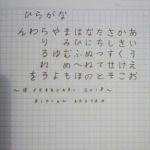 ひらがな
あいうえお
かきくけこ
さしすせそ
たちつてと
なにぬねの
はひふへほ
まみむめも
やゆよ
らりるれろ
わを
ん
FEBRUARI 2018